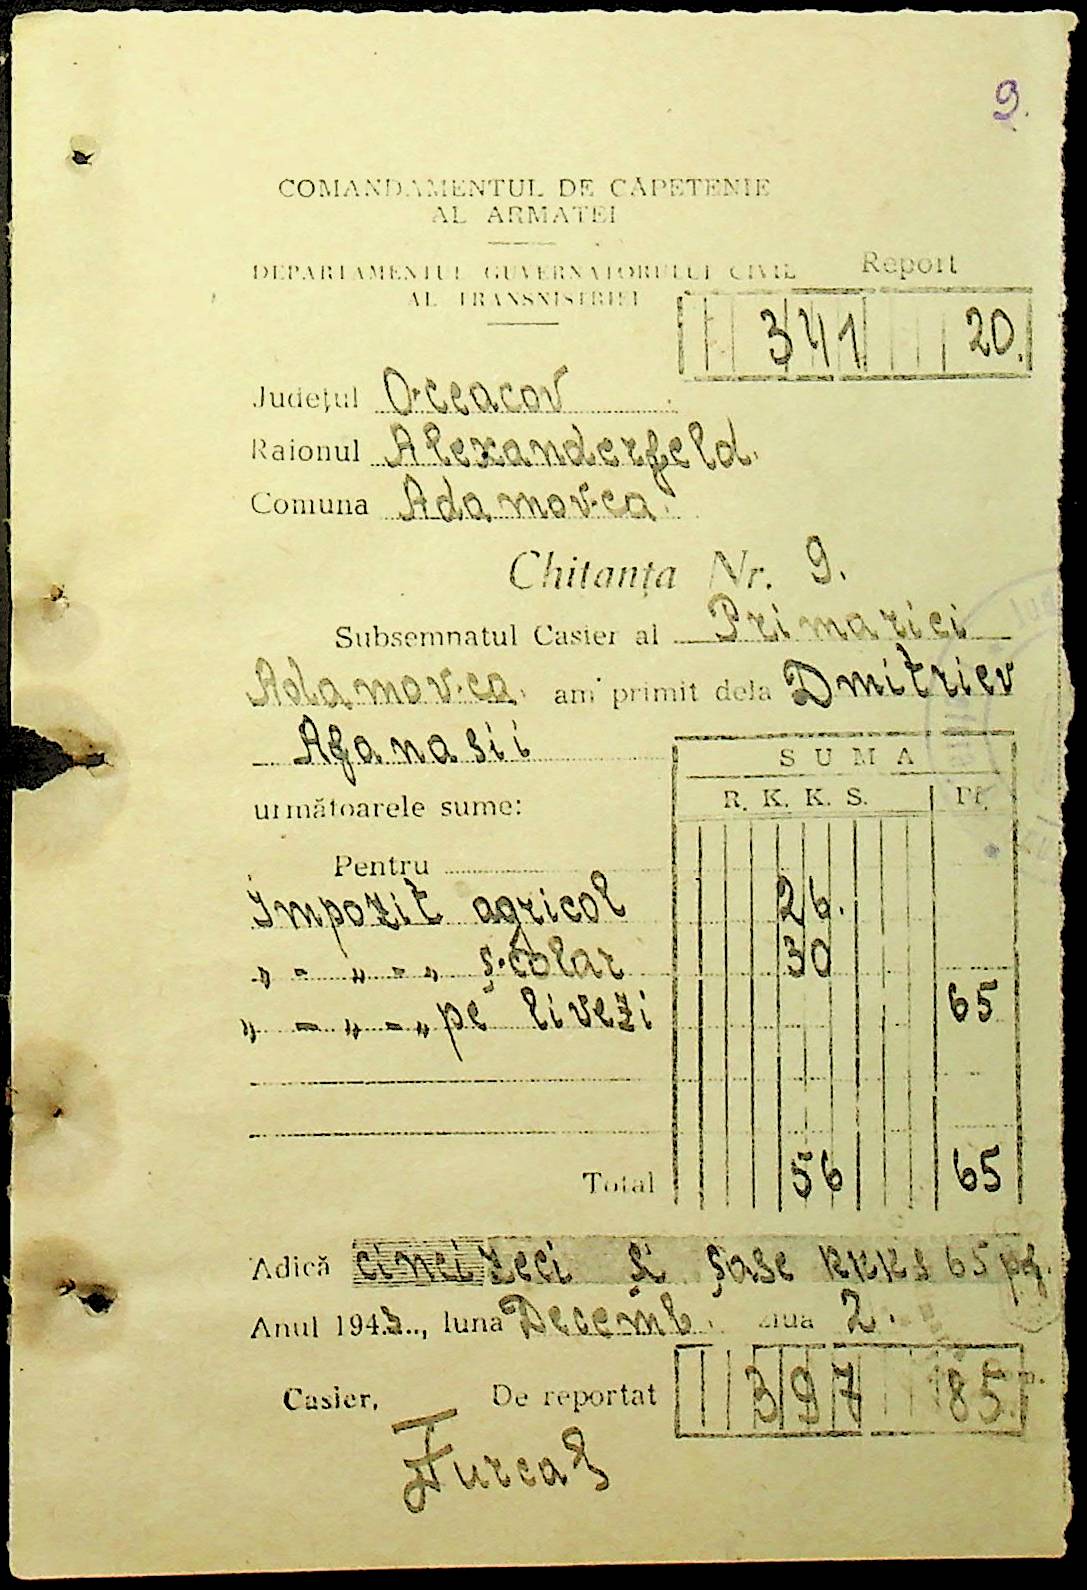 9.
COMANDAMENTUL DE CĂPETENIE
AL ARMATEI
DEPARTAMENTUL GUVERNATORULUI CIVIL
AL TRANSNISTRIEI
Report
341 20.
Județul O-ceacov
Raionul Alexanderfeld.
Comuna Adamov-ca.
Chitanța Nr. 9.
Subsemnatul Casier al Primariei
Adamov-ca. am primit dela Dmitriev
Afanasii
SUMA
următoarele sume:
R. K. K. S. Pf.
Pentru
Impozit agricol 26.
„ - „ - „ școlar 30
„ - „ - „ pe livezi 65
Total 56 65
Adică cinci zeci și șase RKKS 65 pf.
Anul 1943., luna Decemb. ziua 2.
Casier, De reportat 397 85.